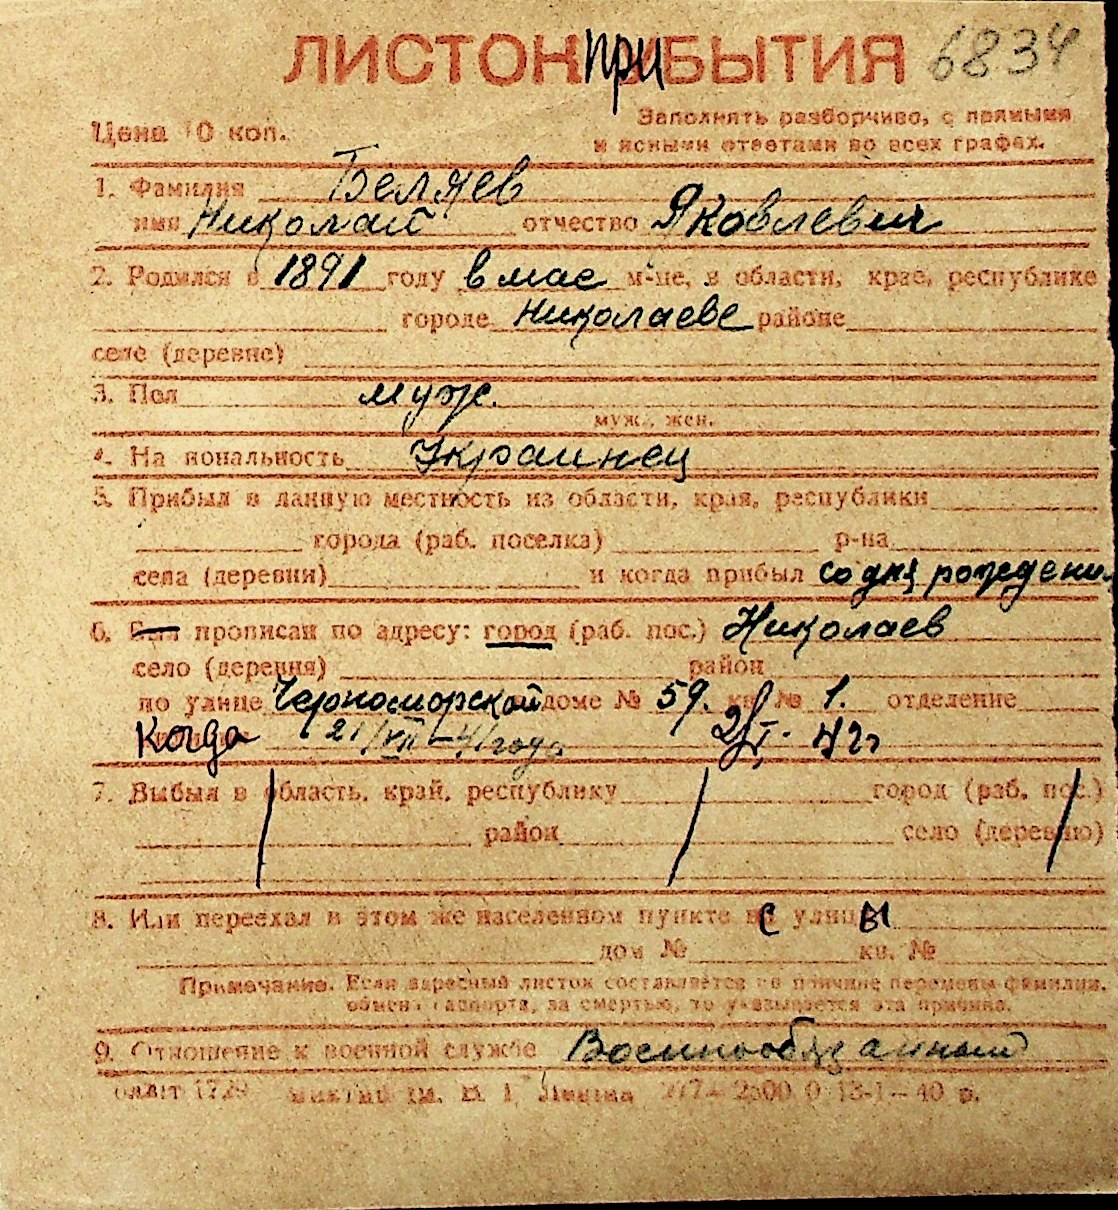 ЛИСТОК ПРИБЫТИЯ 6834
Цена 10 коп.
Заполнять разборчиво, с прямыми
и ясными ответами во всех графах.
1. Фамилия Беляев
имя Николай отчество Яковлевич
2. Родился в 1891 году в мае м-це, в области, крае, республике
городе Николаеве районе
селе (деревне)
3. Пол муж.
муж., жен.
4. Национальность Украинец
5. Прибыл в данную местность из области, края, республики
города (раб. поселка) р-на
села (деревни) и когда прибыл со дня рождени
6. Был прописан по адресу: город (раб. пос.) Николаев
село (деревня) район
по улице Черноморской доме № 59. кв. № 1. отделение
Когда 21/VII-41 года 42г
7. Выбыл в область, край, республику город (раб. пос.)
район село (деревню)
8. Или переехал в этом же населенном пункте с улицы
дом № кв. №
Примечание. Если адресный листок составляется по причине перемены фамилии,
обмена паспорта, за смертью, то указывается эта причина.
9. Отношение к военной службе Военнообязанный
1729 им. В. И. Ленина 13-1-40 р.